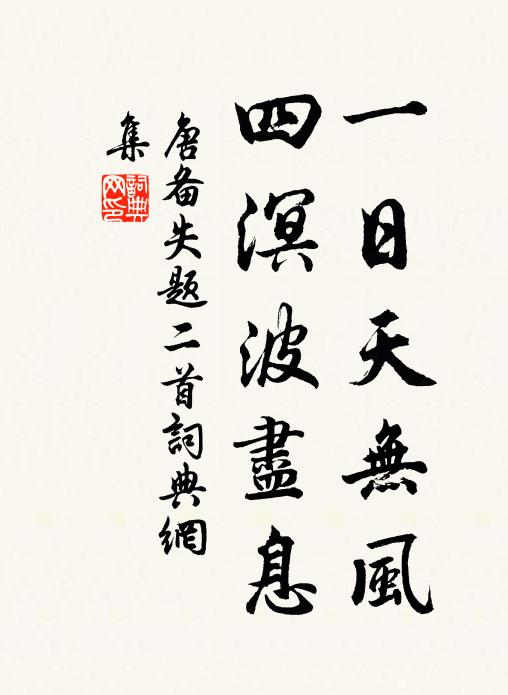 一日天無風
四溟波盡息
唐备失题二首詞典網
集
詞典网印